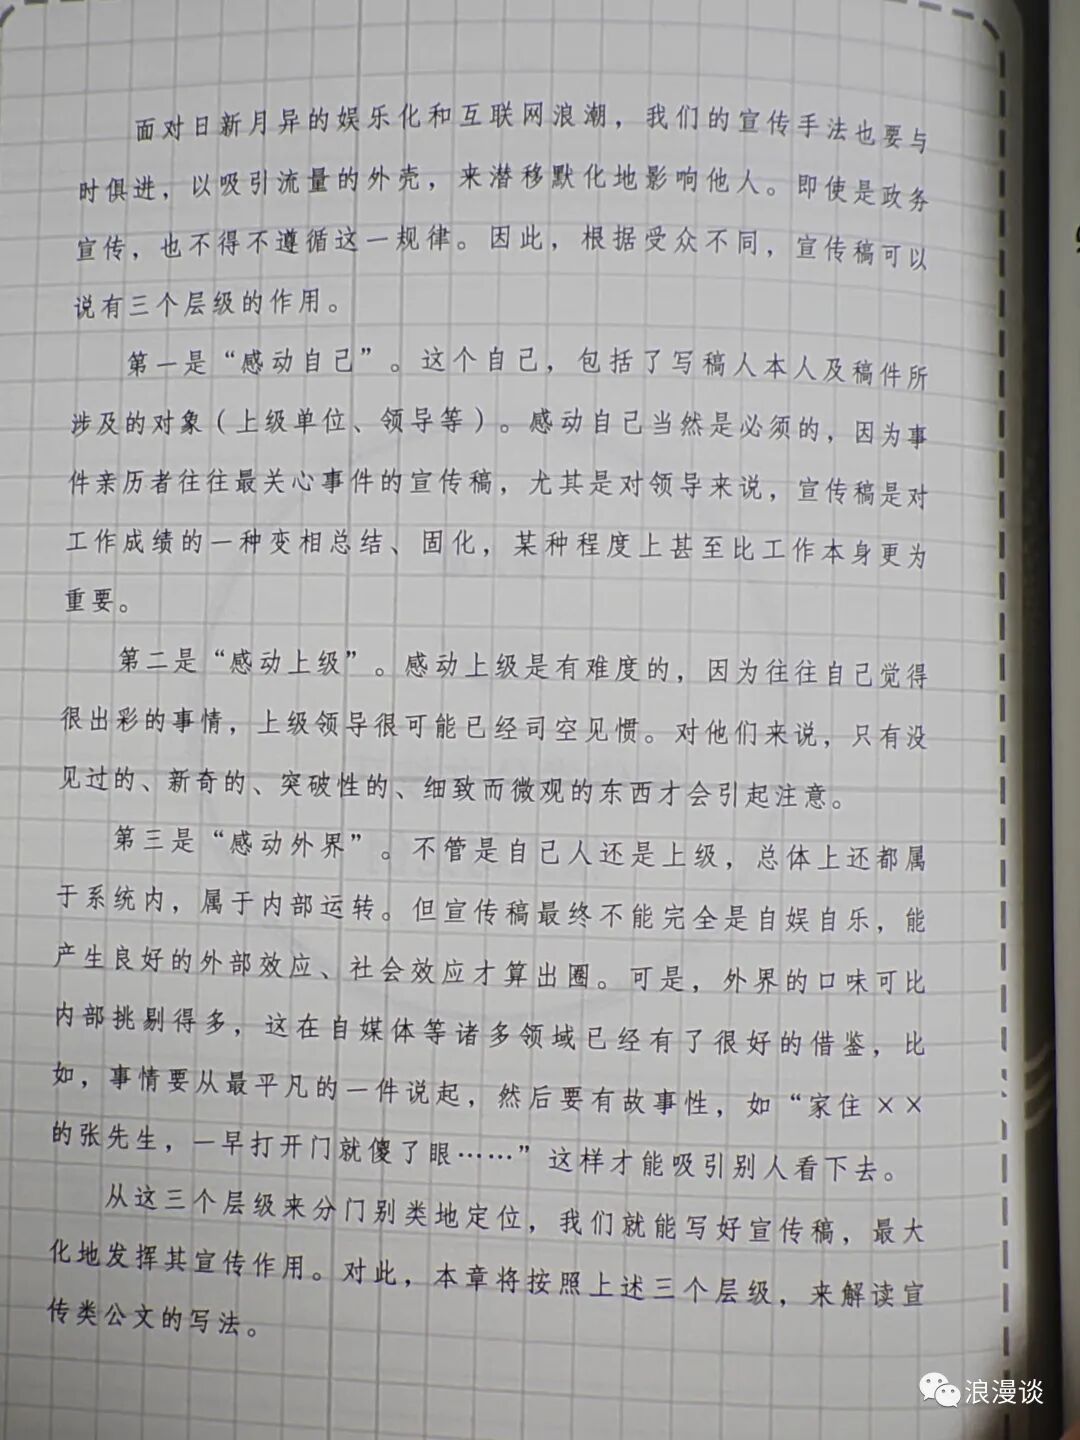 面对日新月异的娱乐化和互联网浪潮，我们的宣传手法也要与
时俱进，以吸引流量的外壳，来潜移默化地影响他人。即使是政务
宣传，也不得不遵循这一规律。因此，根据受众不同，宣传稿可以
说有三个层级的作用。
第一是“感动自己”。这个自己，包括了写稿人本人及稿件所
涉及的对象（上级单位、领导等）。感动自己当然是必须的，因为事
件亲历者往往最关心事件的宣传稿，尤其是对领导来说，宣传稿是对
工作成绩的一种变相总结、固化，某种程度上甚至比工作本身更为
重要。
第二是“感动上级”。感动上级是有难度的，因为往往自己觉得
很出彩的事情，上级领导很可能已经司空见惯。对他们来说，只有没
见过的、新奇的、突破性的、细致而微观的东西才会引起注意。
第三是“感动外界”。不管是自己人还是上级，总体上还都属
于系统内，属于内部运转。但宣传稿最终不能完全是自娱自乐，能
产生良好的外部效应、社会效应才算出圈。可是，外界的口味可比
内部挑剔得多，这在自媒体等诸多领域已经有了很好的借鉴，比
如，事情要从最平凡的一件说起，然后要有故事性，如“家住××
的张先生，一早打开门就傻了眼……”这样才能吸引别人看下去。
从这三个层级来分门别类地定位，我们就能写好宣传稿，最大
化地发挥其宣传作用。对此，本章将按照上述三个层级，来解读宣
传类公文的写法。
浪漫谈